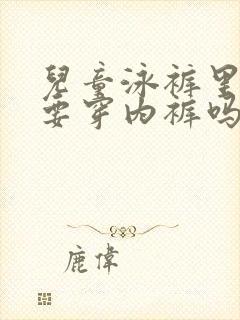 兒童泳裤里
要穿内裤吗
鹿偉